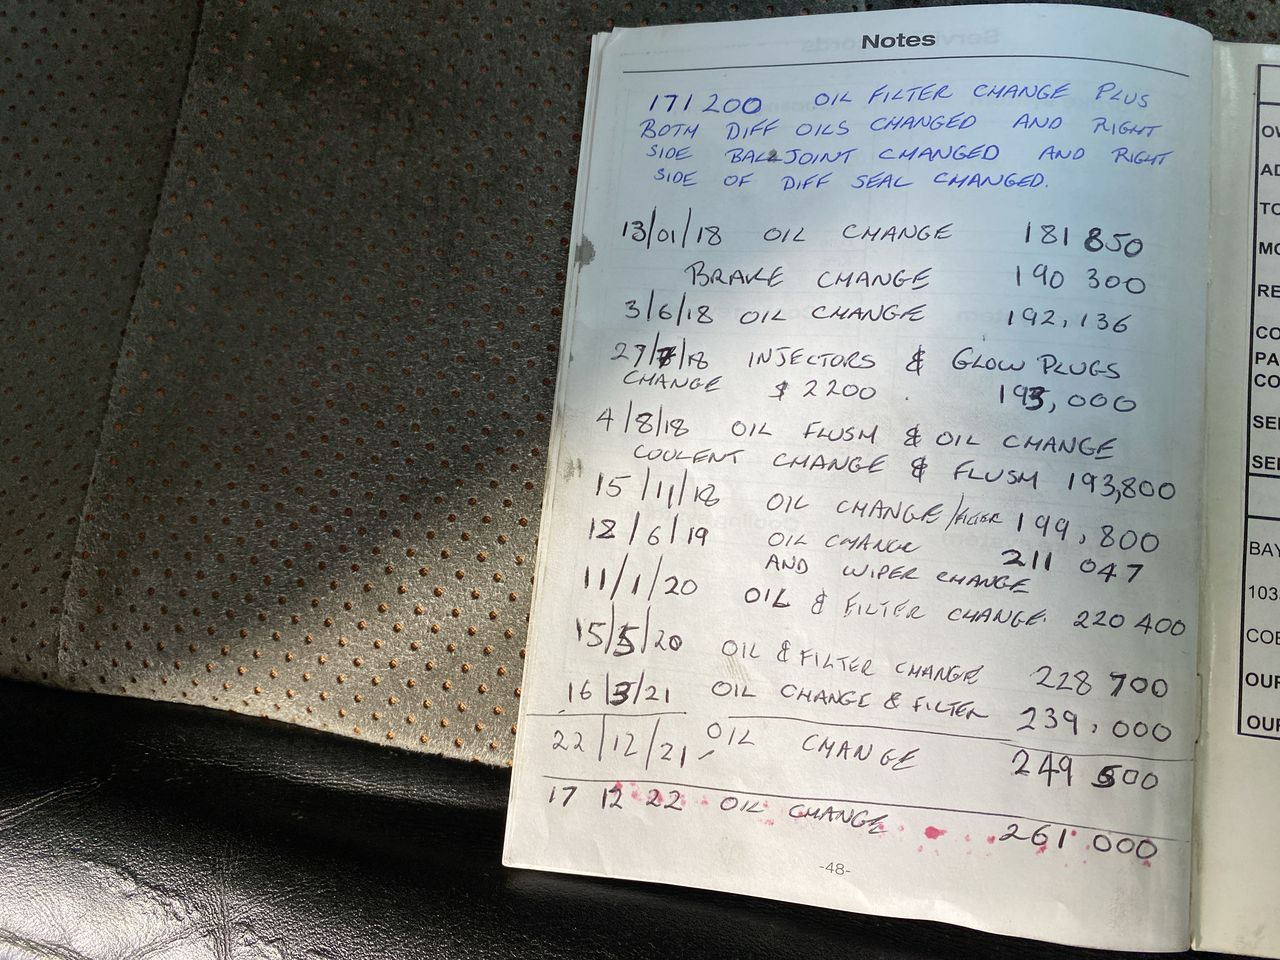 Notes
171200 OIL FILTER CHANGE PLUS
BOTH DIFF OILS CHANGED AND RIGHT
SIDE BALLJOINT CHANGED AND RIGHT
SIDE OF DIFF SEAL CHANGED.
13/01/18 OIL CHANGE 181 850
BRAKE CHANGE 190 300
3/6/18 OIL CHANGE 192,136
27/7/18 INJECTORS & GLOW PLUGS
CHANGE $2200. 193,000
4/8/18 OIL FLUSH & OIL CHANGE
COOLENT CHANGE & FLUSH 193,800
15/11/18 OIL CHANGE/FILTER 199,800
18/6/19 OIL CHANGE 211 047
AND WIPER CHANGE
11/1/20 OIL & FILTER CHANGE 220 400
15/5/20 OIL & FILTER CHANGE 228 700
16/3/21 OIL CHANGE & FILTER 239,000
22/12/21 OIL CHANGE 249 500
17 12 22 OIL CHANGE 261 000
-48-
BAY
103